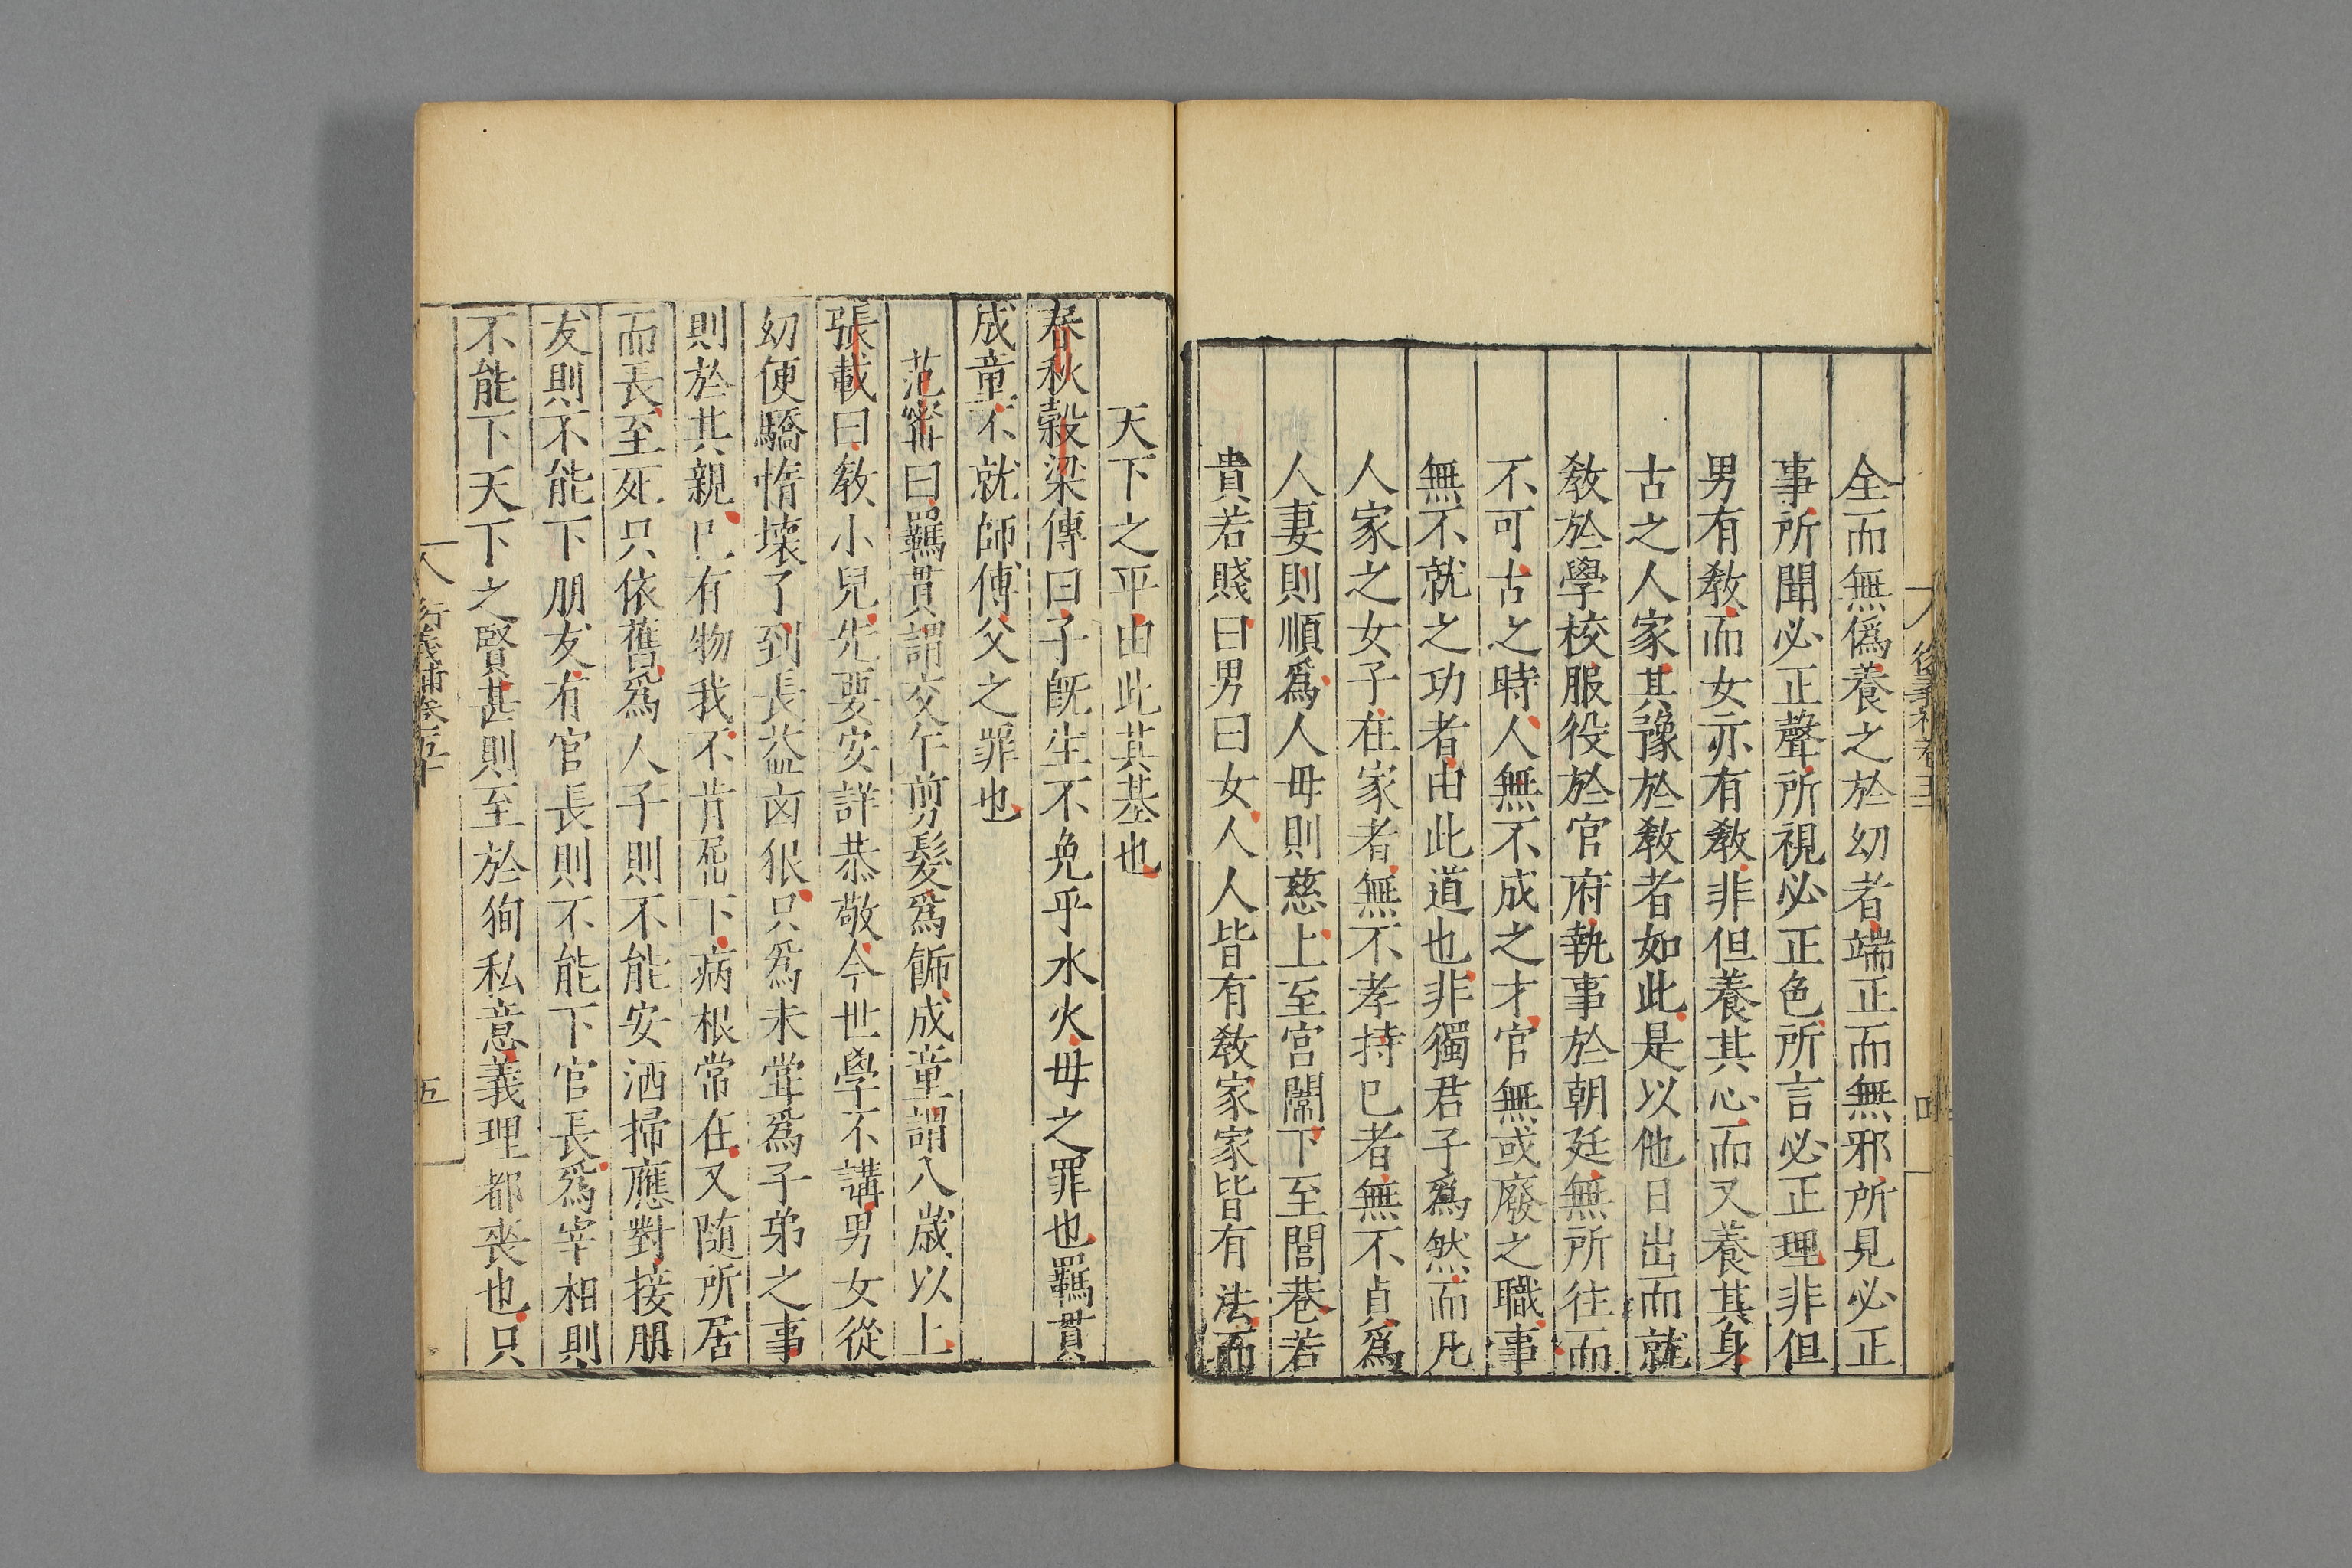 全而無僞養之於幼者端正而無邪所見必正
事所聞必正聲所視必正色所言必正理非但
男有敎而女亦有敎非但養其心而又養其身
古之人家其豫於敎者如此是以他日出而就
敎於學校服役於官府執事於朝廷無所往而
不可古之時人無不成之才官無或廢之職事
無不就之功者由此道也非獨君子爲然而凡
人家之女子在家者無不孝持己者無不貞爲
人妻則順爲人母則慈上至宮闈下至閭巷若
貴若賤曰男曰女人人皆有敎家家皆有法而
天下之平由此其基也
春秋穀梁傳曰子旣生不免乎水火母之罪也羈貫
成童不就師傅父之罪也
范甯曰羈貫謂交午剪髮爲飾成童謂八歲以上
張載曰敎小兒先要安詳恭敬今世學不講男女從
幼便驕惰壞了到長益凶狠只爲未嘗爲子弟之事
則於其親已有物我不肯屈下病根常在又隨所居
而長至死只依舊爲人子則不能安洒掃應對接朋
友則不能下朋友有官長則不能下官長爲宰相則
不能下天下之賢甚則至於狥私意義理都喪也只
衍義補卷五十
五